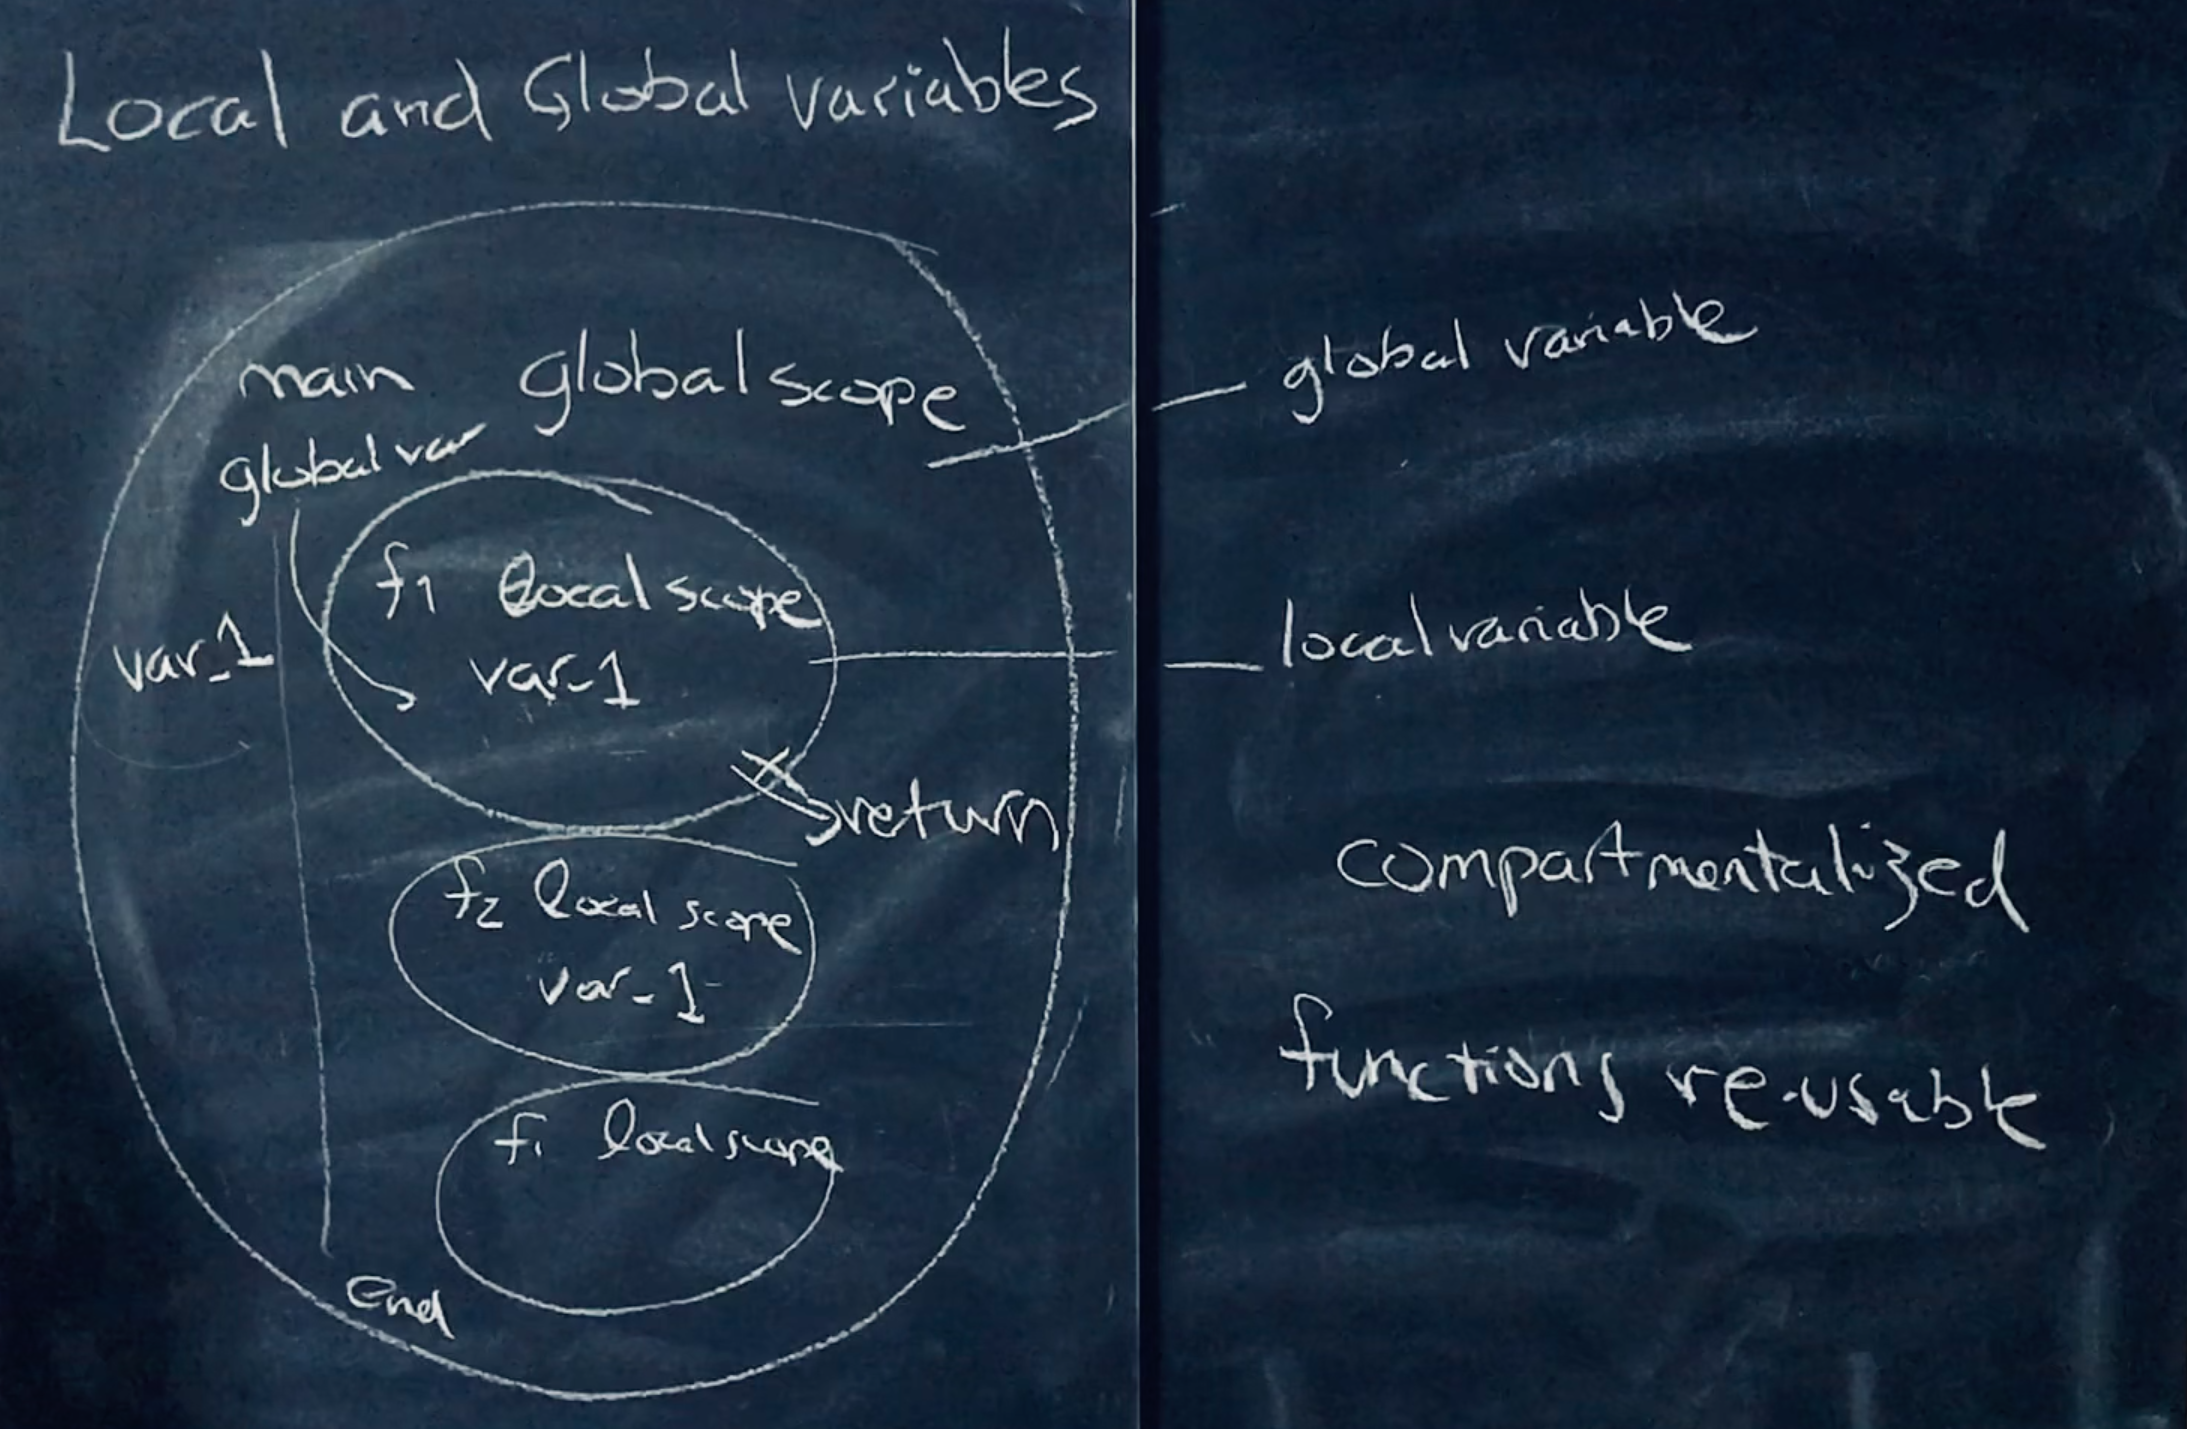 Local and Global variables
main global scope
global var
f1 local scope
var_1
var_1
return
f2 local scope
var_1
f1 local scope
end
global variable
local variable
compartmentalized
functions re-usable